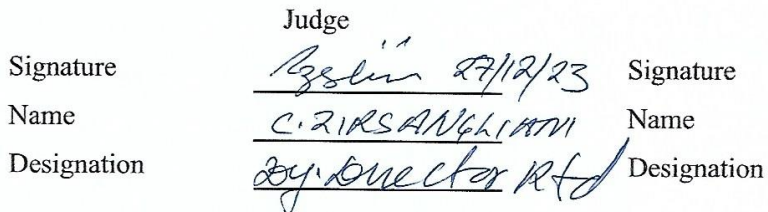 Judge
Signature 27/12/23 Signature
Name C. ZIRSANGLIANI Name
Designation Dy. Director Rtd Designation